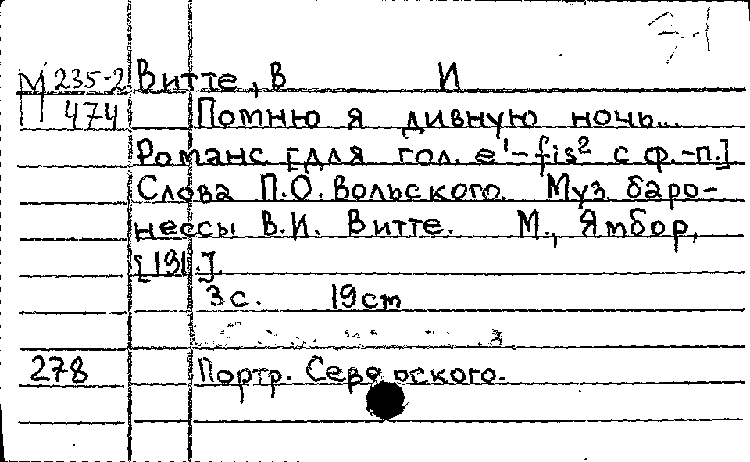 31
М 235-2 Витте, В И
474 Помню я дивную ночь...
Романс [для гол. e¹-fis² с ф.-п.]
Слова П.О. Вольского. Муз. баро-
нессы В.И. Витте. М., Ямбор,
[191.].
3 с. 19 cm
278 Портр.